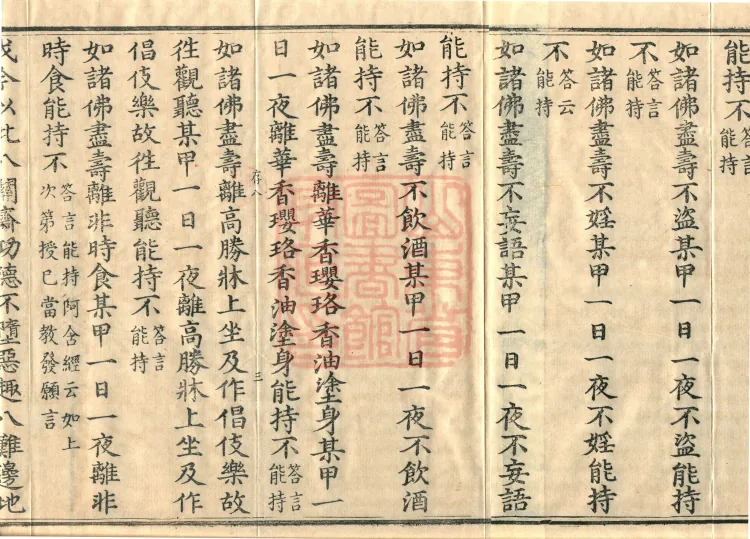 能持不答言能持
如諸佛盡壽不盜某甲一日一夜不盜能持
不答言能持
如諸佛盡壽不婬某甲一日一夜不婬能持
不答云能持
如諸佛盡壽不妄語某甲一日一夜不妄語
能持不答言能持
如諸佛盡壽不飲酒某甲一日一夜不飲酒
能持不答言能持
如諸佛盡壽離華香瓔珞香油塗身某甲一
日一夜離華香瓔珞香油塗身能持不答言能持
存八 三
如諸佛盡壽離高勝牀上坐及作倡伎樂故
徃觀聽某甲一日一夜離高勝牀上坐及作
倡伎樂故徃觀聽能持不答言能持
如諸佛盡壽離非時食某甲一日一夜離非
時食能持不答言能持阿含經云如上次第授已當教發願言
我今以此八關齋功德不墮惡趣八難邊地